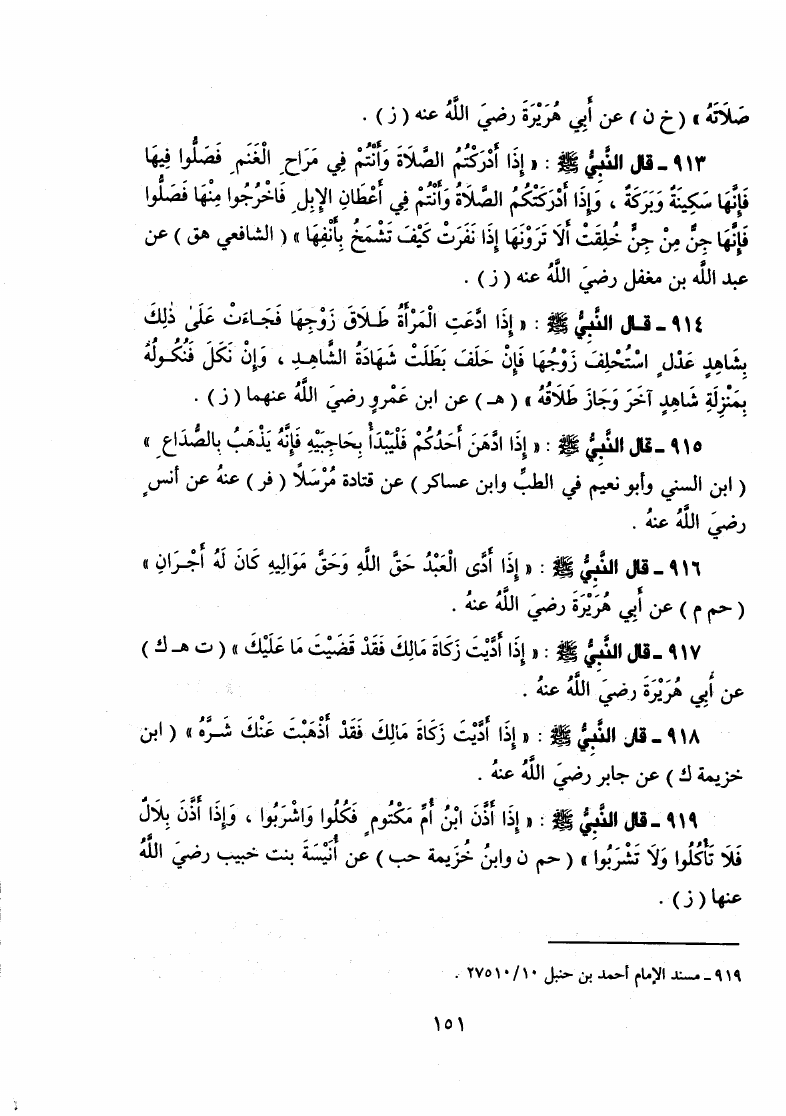 صَلَاتَهُ » ( خ ن ) عن أَبِي هُرَيْرَةَ رضيَ اللَّهُ عنه ( ز ) .
٩١٣ ـ قال النَّبِيُّ ﷺ : « إِذَا أَدْرَكْتُمُ الصَّلَاةَ وَأَنْتُمْ فِي مَرَاحِ الْغَنَمِ فَصَلُّوا فِيهَا
فَإِنَّهَا سَكِينَةٌ وَبَرَكَةٌ ، وَإِذَا أَدْرَكَتْكُمُ الصَّلَاةُ وَأَنْتُمْ فِي أَعْطَانِ الإِبِلِ فَاخْرُجُوا مِنْهَا فَصَلُّوا
فَإِنَّهَا جِنٌّ مِنْ جِنٍّ خُلِقَتْ أَلَا تَرَوْنَهَا إِذَا نَفَرَتْ كَيْفَ تَشْمَخُ بِأَنْفِهَا » ( الشافعي هق ) عن
عبد اللَّه بن مغفل رضيَ اللَّهُ عنه ( ز ) .
٩١٤ ـ قال النَّبِيُّ ﷺ : « إِذَا ادَّعَتِ الْمَرْأَةُ طَلَاقَ زَوْجِهَا فَجَاءَتْ عَلَىٰ ذٰلِكَ
بِشَاهِدٍ عَدْلٍ اسْتُحْلِفَ زَوْجُهَا فَإِنْ حَلَفَ بَطَلَتْ شَهَادَةُ الشَّاهِدِ ، وَإِنْ نَكَلَ فَنُكُولُهُ
بِمَنْزِلَةِ شَاهِدٍ آخَرَ وَجَازَ طَلَاقُهُ » ( هـ ) عن ابن عَمْرٍو رضيَ اللَّهُ عنهما ( ز ) .
٩١٥ ـ قال النَّبِيُّ ﷺ : « إِذَا ادَّهَنَ أَحَدُكُمْ فَلْيَبْدَأْ بِحَاجِبَيْهِ فَإِنَّهُ يَذْهَبُ بِالصُّدَاعِ »
( ابن السني وأبو نعيم في الطبِّ وابن عساكر ) عن قتادة مُرْسَلًا ( فر ) عنهُ عن أنسٍ
رضيَ اللَّهُ عنهُ .
٩١٦ ـ قال النَّبِيُّ ﷺ : « إِذَا أَدَّى الْعَبْدُ حَقَّ اللَّهِ وَحَقَّ مَوَالِيهِ كَانَ لَهُ أَجْرَانِ »
( حم م ) عن أَبِي هُرَيْرَةَ رضيَ اللَّهُ عنهُ .
٩١٧ ـ قال النَّبِيُّ ﷺ : « إِذَا أَدَّيْتَ زَكَاةَ مَالِكَ فَقَدْ قَضَيْتَ مَا عَلَيْكَ » ( ت هـ ك )
عن أَبِي هُرَيْرَةَ رضيَ اللَّهُ عنهُ .
٩١٨ ـ قال النَّبِيُّ ﷺ : « إِذَا أَدَّيْتَ زَكَاةَ مَالِكَ فَقَدْ أَذْهَبْتَ عَنْكَ شَرَّهُ » ( ابن
خزيمة ك ) عن جابر رضيَ اللَّهُ عنهُ .
٩١٩ ـ قال النَّبِيُّ ﷺ : « إِذَا أَذَّنَ ابْنُ أُمِّ مَكْتُومٍ فَكُلُوا وَاشْرَبُوا ، وَإِذَا أَذَّنَ بِلَالٌ
فَلَا تَأْكُلُوا وَلَا تَشْرَبُوا » ( حم ن وابنُ خُزَيمة حب ) عن أُنَيْسَةَ بنت خبيب رضيَ اللَّهُ
عنها ( ز ) .
٩١٩ ـ مسند الإمام أحمد بن حنبل ٢٧٥١٠/١٠ .
١٥١